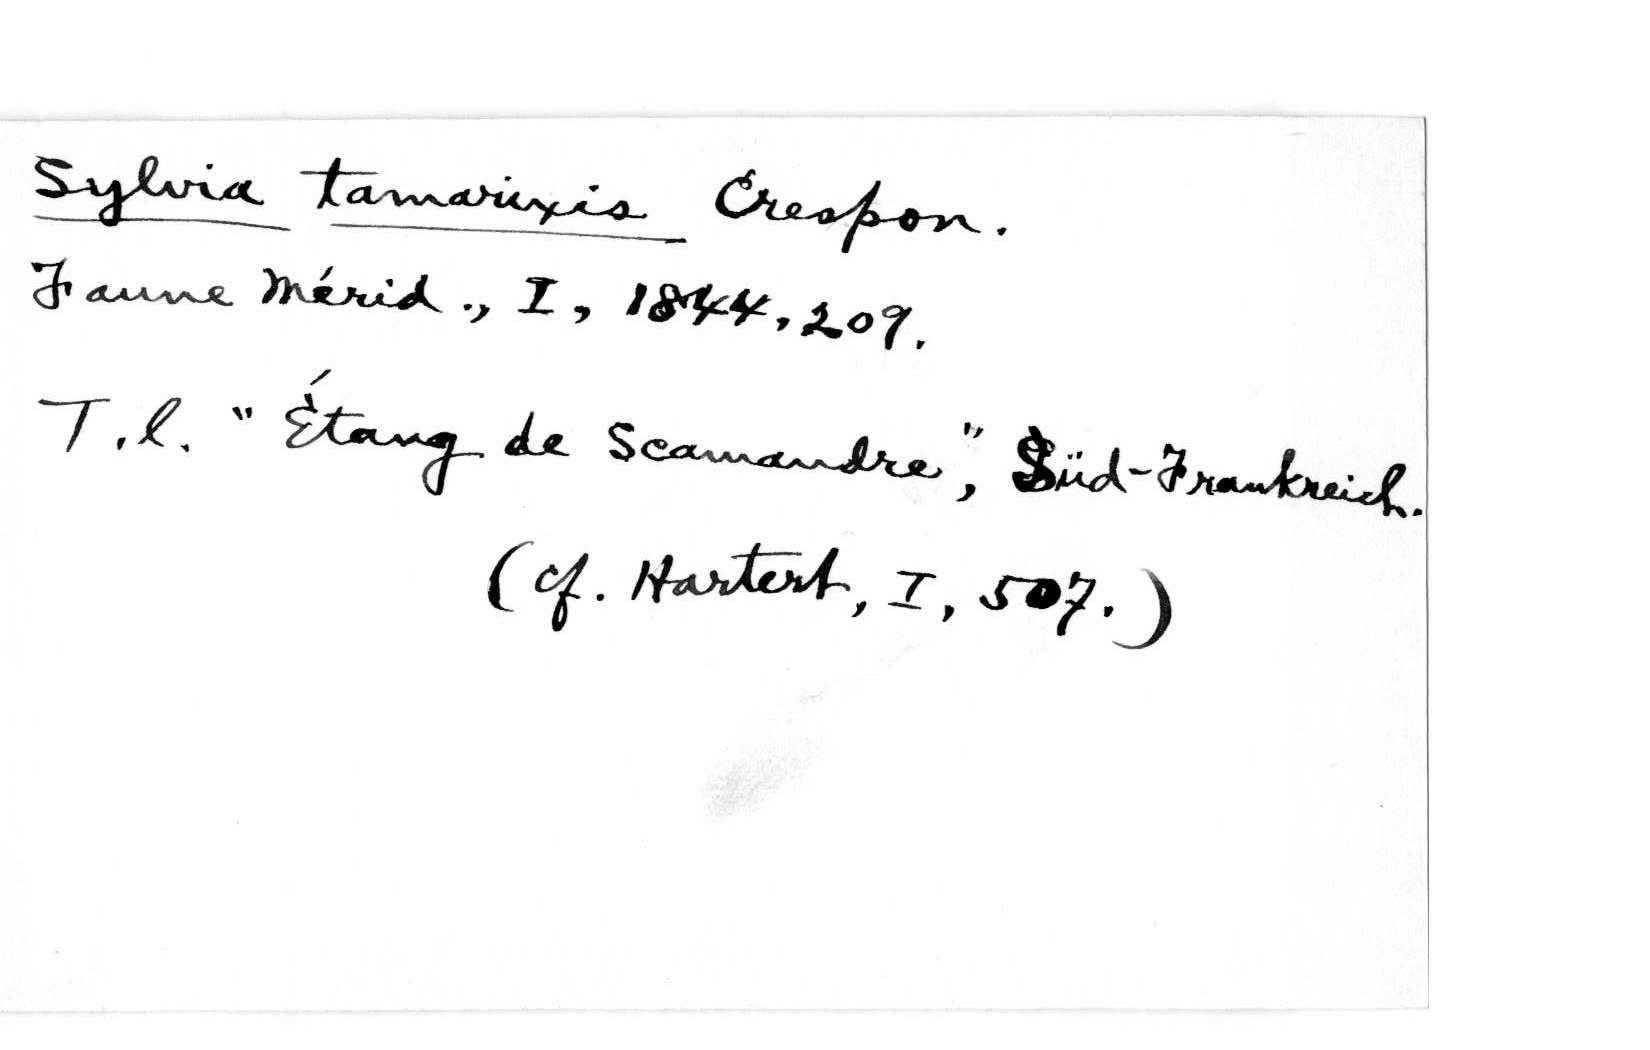 Sylvia tamarixis Crespon.
Faune Mérid., I, 1844, 209.
T. l. "Étang de Scamandre", Süd-Frankreich.
(cf. Hartert, I, 507.)